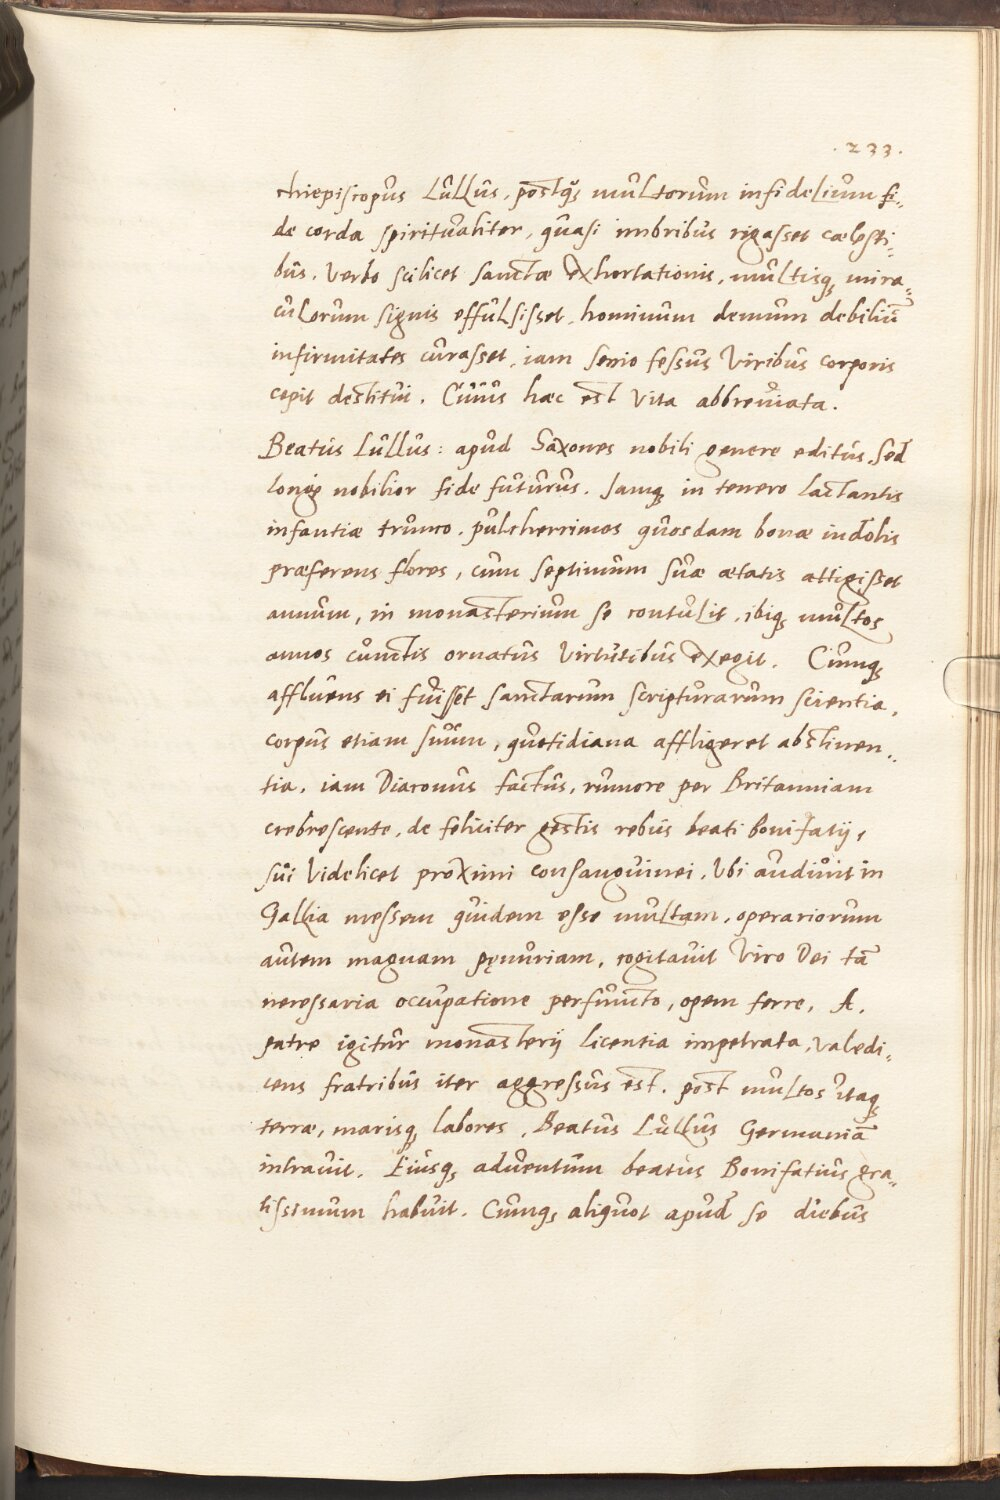 . 233 .
chiepiscopus Lullus, postq̃ multorum infidelium fi-
de corda spiritualiter, quasi imbribus rigasset cælesti-
bus. Verbo scilicet sanctæ exhortationis, multisq̃ mira-
culorum signis effulsisset, hominum demum debiliū
infirmitates curasset, iam senio fessus Viribus corporis
cepit destitui. Cuius hæc est Vita abbreviata.
Beatus Lullus: apud Saxones nobili genere editus, sed
longe nobilior fide futurus. Iamq̃ in tenero lactantis
infantiæ trunco, pulcherrimos quosdam bonæ indolis
præferens flores, cum septimum suæ ætatis attigisset
annum, in monasterium se contulit, ibiq̃ multos
annos cunctis ornatus Virtutibus exegit. Cumq̃
affluens ei fuisset sanctarum scripturarum scientia,
corpus etiam suum, quotidiana affligeret abstinen-
tia, iam Diaconus factus, rumore per Britanniam
crebrescente, de feliciter gestis rebus beati bonifatij,
sui Videlicet proximi consanguinei, Vbi audiuit in
Gallia messem quidem esse multam, operariorum
autem magnam pęnuriam, cogitauit Viro Dei tā
necessaria occupatione perfuncto, opem ferre, A.
patre igitur monasterij licentia impetrata, valedi-
cens fratribus iter aggressus est. post multos itaq̃
terræ, marisq̃ labores, Beatus Lullus Germaniā
intrauit. Eiusq̃ aduentum beatus Bonifatius gra-
tissimum habuit. Cumq̃ aliquot apud se diebus